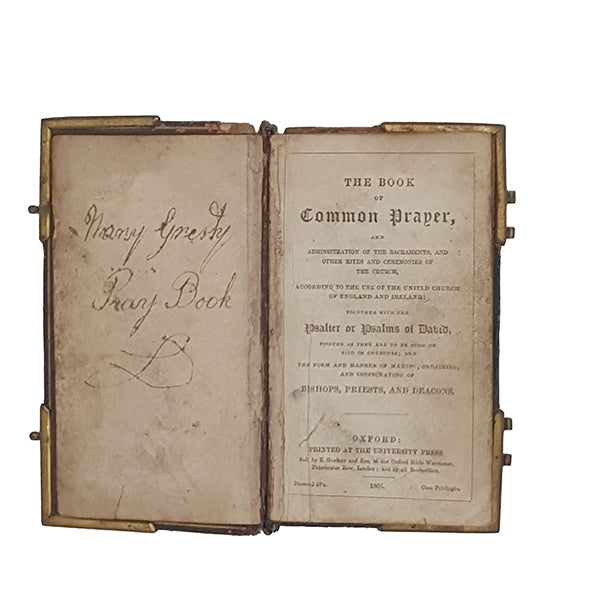 Pray Book
THE BOOK
OF
Common Prayer,
AND
ADMINISTRATION OF THE SACRAMENTS, AND
OTHER RITES AND CEREMONIES OF
THE CHURCH,
ACCORDING TO THE USE OF THE UNITED CHURCH
OF ENGLAND AND IRELAND:
TOGETHER WITH THE
Psalter or Psalms of David,
POINTED AS THEY ARE TO BE SUNG OR
SAID IN CHURCHES; AND
THE FORM AND MANNER OF MAKING, ORDAINING,
AND CONSECRATING OF
BISHOPS, PRIESTS, AND DEACONS.
OXFORD:
PRINTED AT THE UNIVERSITY PRESS.
Sold by E. Gardner and Son, at the Oxford Bible Warehouse,
Paternoster Row, London; and by all Booksellers.
1865.
Cum Privilegio.